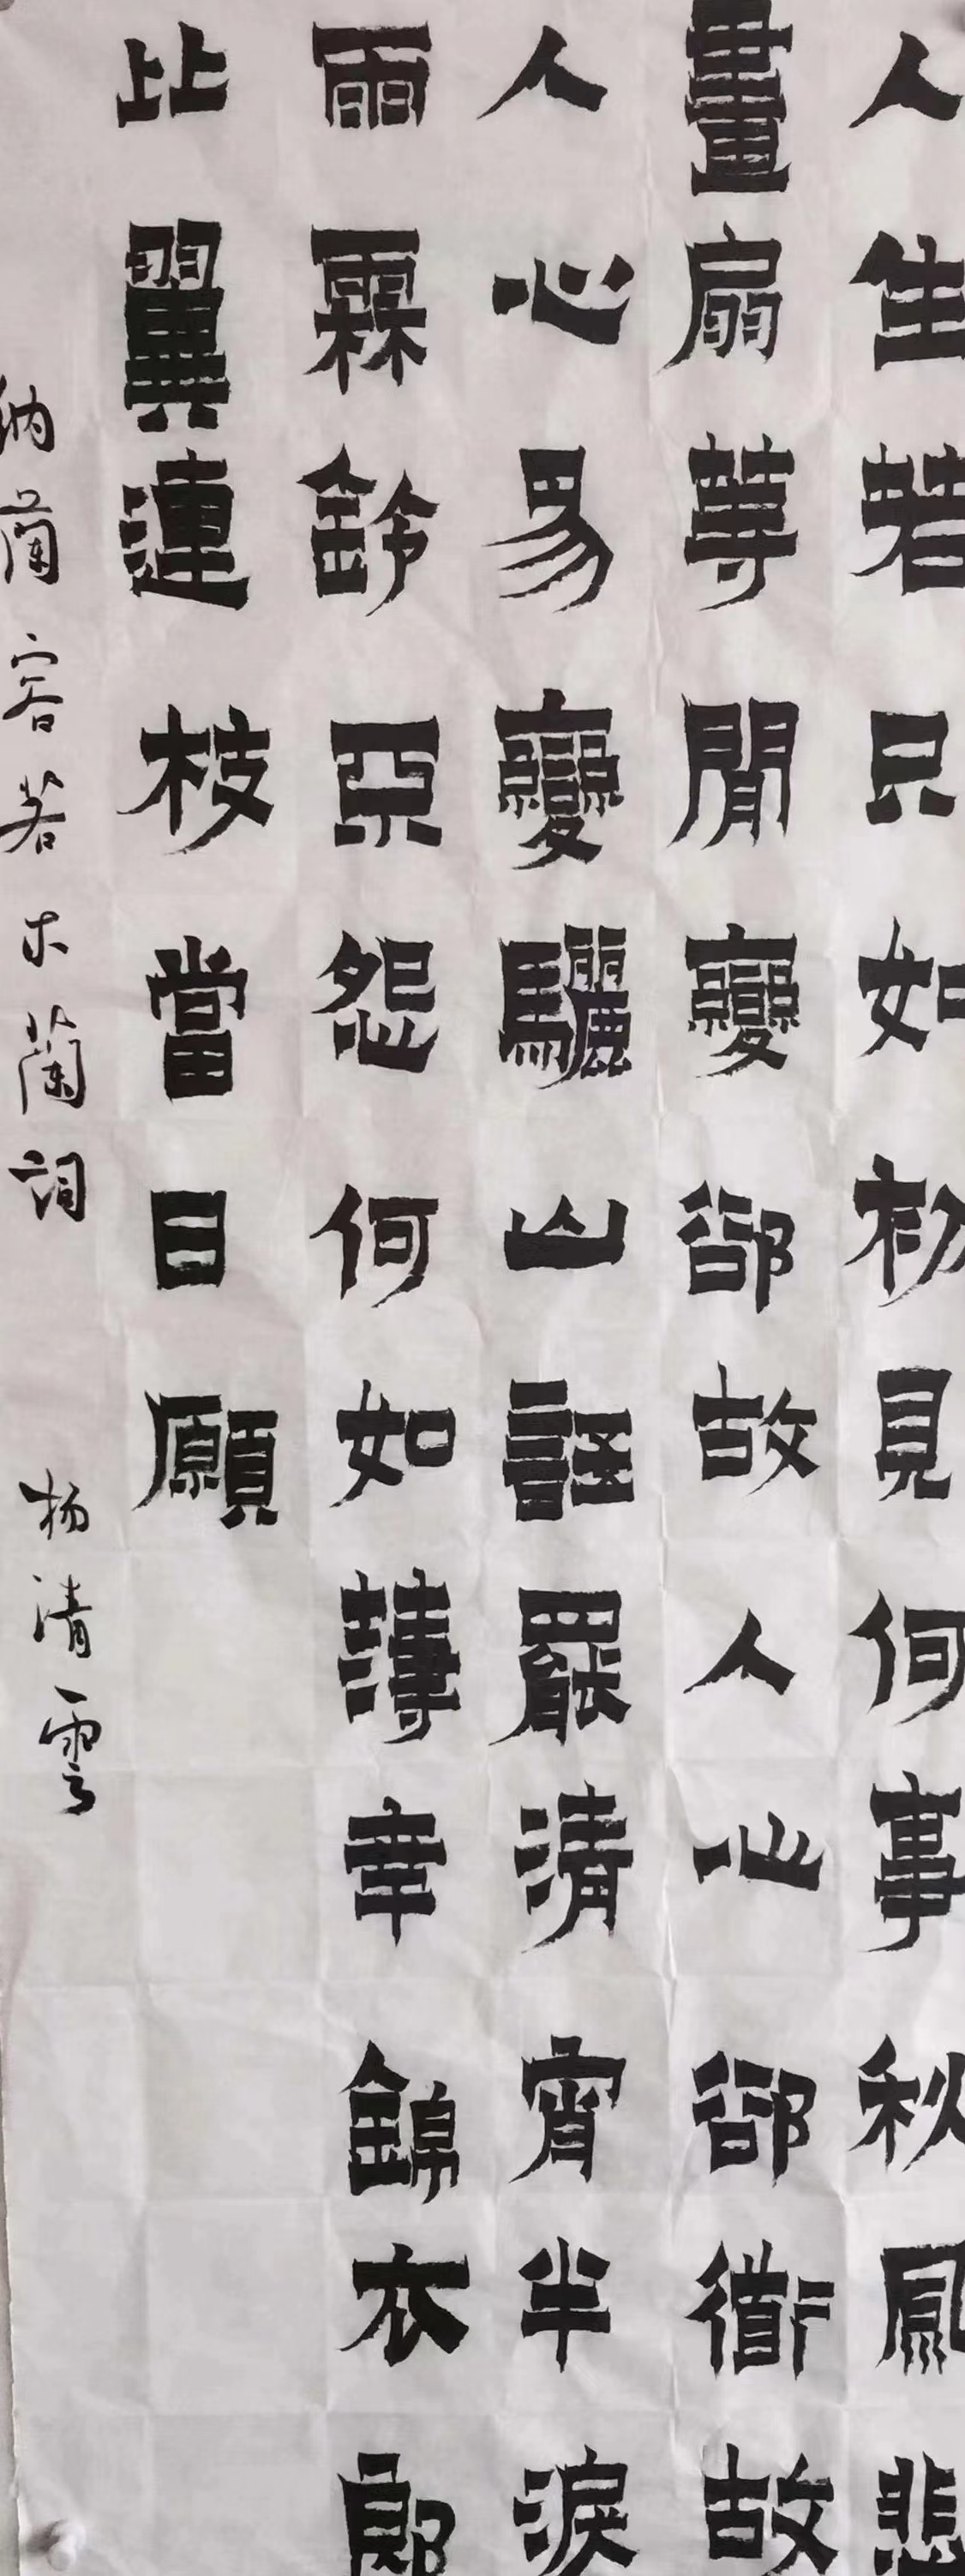 人生若只如初見何事秋風悲
畫扇等閒變卻故人心卻衜故
人心易變驪山語罷清宵半淚
雨霖鈴亞怨何如薄幸錦衣郎
比翼連枝當日願
納蘭容若木蘭詞
杨清雲